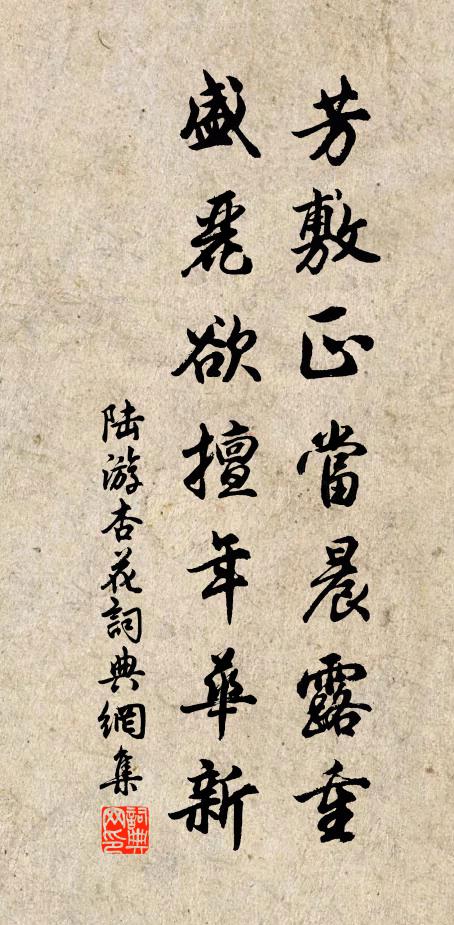 芳敷正當晨露重
盛麗欲擅年華新
陸游杏花詞典網集
詞典网印